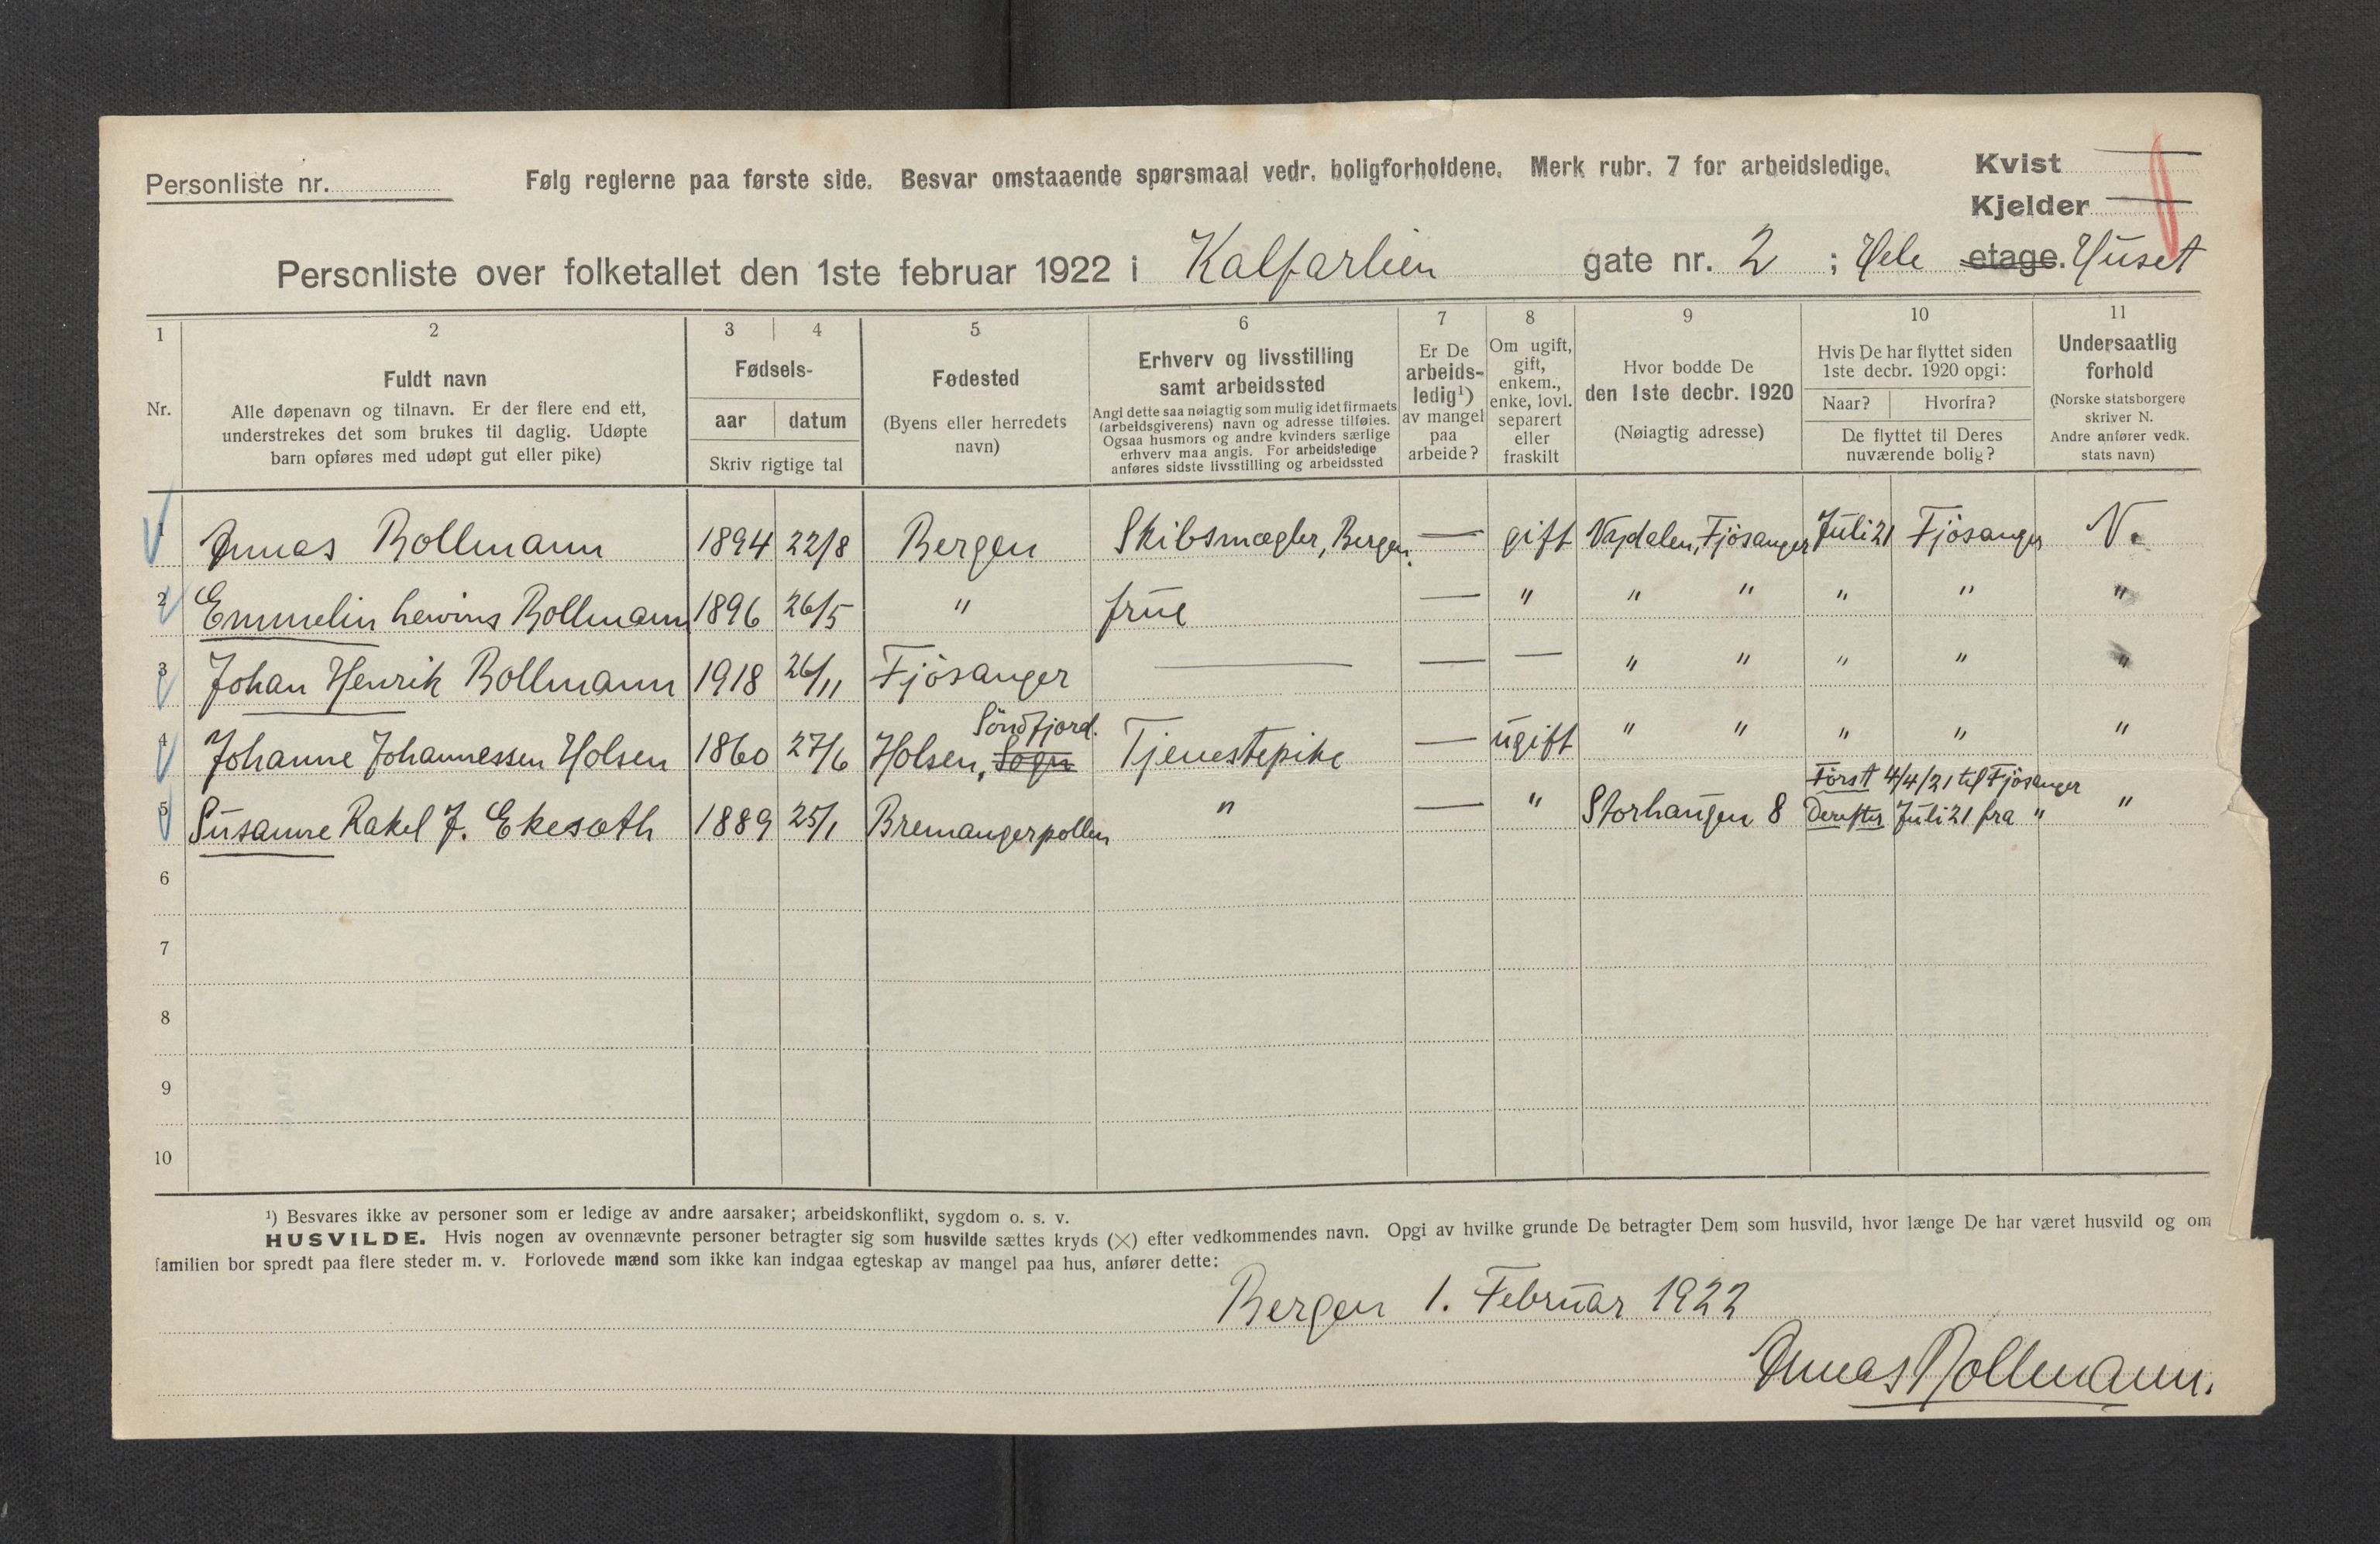 Personliste nr.
Følg reglerne paa første side. Besvar omstaaende spørsmaal vedr. boligforholdene. Merk rubr. 7 for arbeidsledige.
Kvist —
Kjelder —
Personliste over folketallet den 1ste februar 1922 i Kalfarlien gate nr. 2 ; Hele etage. Huset
1 2 3 4 5 6 7 8 9 10 11
Nr.
Fuldt navn
Alle døpenavn og tilnavn. Er der flere end ett,
understrekes det som brukes til daglig. Udøpte
barn opføres med udøpt gut eller pike)
Fødsels-
aar datum
Skriv rigtige tal
Fødested
(Byens eller herredets
navn)
Erhverv og livsstilling
samt arbeidssted
Angi dette saa nøiagtig som mulig idet firmaets
(arbeidsgiverens) navn og adresse tilføies.
Ogsaa husmors og andre kvinders særlige
erhverv maa angis. For arbeidsledige
anføres sidste livsstilling og arbeidssted
Er De
arbeids-
ledig¹)
av mangel
paa
arbeide?
Om ugift,
gift,
enkem.,
enke, lovl.
separert
eller
fraskilt
Hvor bodde De
den 1ste decbr. 1920
(Nøiagtig adresse)
Hvis De har flyttet siden
1ste decbr. 1920 opgi:
Naar? Hvorfra?
De flyttet til Deres
nuværende bolig?
Undersaatlig
forhold
(Norske statsborgere
skriver N.
Andre anfører vedk.
stats navn)
1 Annas Rollmann 1894 22/8 Bergen Skibsmægler, Bergen. — gift Fjösanger Juli 21 Fjösanger N.
2 Emmelin Rollmann 1896 26/5 " frue — " " " " " "
3 Johan Henrik Rollmann 1918 26/11 Fjösanger — — — " " " " "
4 Johanne Johannessen Holsen 1860 27/6 Holsen, Sogn Söndfjord. Tjenestepike — ugift " " " " "
5 Susanne Rakel J. Ekesæth 1889 25/1 Bremangerpollen " — " Storhaugen 8 Först 4/4/21 til Fjösanger
Derefter Juli 21 fra " "
6
7
8
9
10
¹) Besvares ikke av personer som er ledige av andre aarsaker; arbeidskonflikt, sygdom o. s. v.
HUSVILDE. Hvis nogen av ovennævnte personer betragter sig som husvilde sættes kryds (×) efter vedkommendes navn. Opgi av hvilke grunde De betragter Dem som husvild, hvor længe De har været husvild og om
familien bor spredt paa flere steder m. v. Forlovede mænd som ikke kan indgaa egteskap av mangel paa hus, anfører dette:
Bergen 1. Februar 1922
Annas Rollmann.